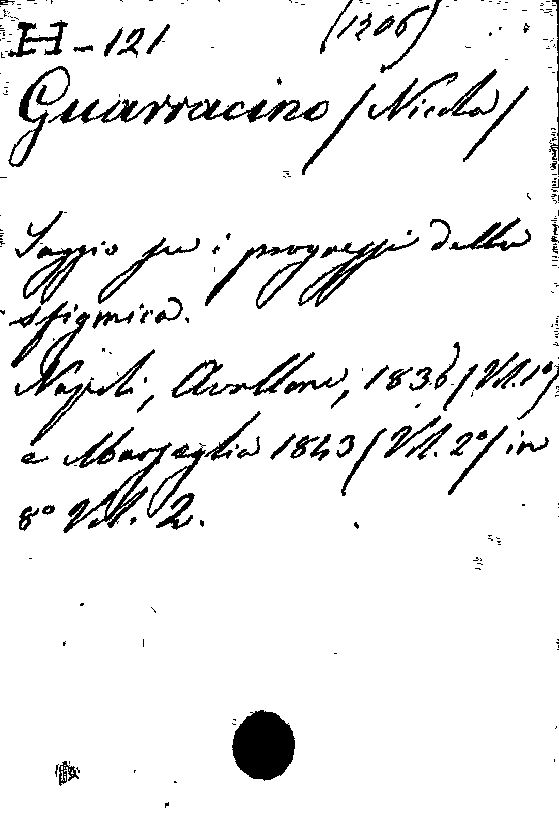 H-121 (1206)
Guarracino (Nicola)
Saggio su i progressi della
sfigmica.
Napoli, Avallone, 1836 (Vol. 1º)
e Marseglia 1843 (Vol. 2º) in
8º Vol. 2.